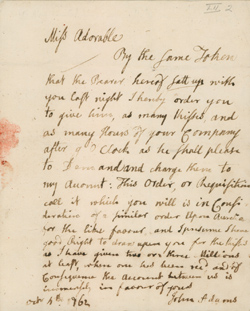 Miss Adorable
By the same Token
that the Bearer hereof satt up with
you last night I hereby order you
to give him, as many Kisses, and
as many Hours of your Company
after 9 O'Clock as he shall please
to Demand and charge them to
my Account: This Order, or Requisition
call it which you will is in Consi-
deration of a similar order Upon Aurelia
for the like favour, and I presume I have
good Right to draw upon you for the Kisses
as I have given two or three Millions
at least, when one has been recd, and of
Consequence the Account between us is
immensely in favour of yours
John Adams
Octr 4th 1762